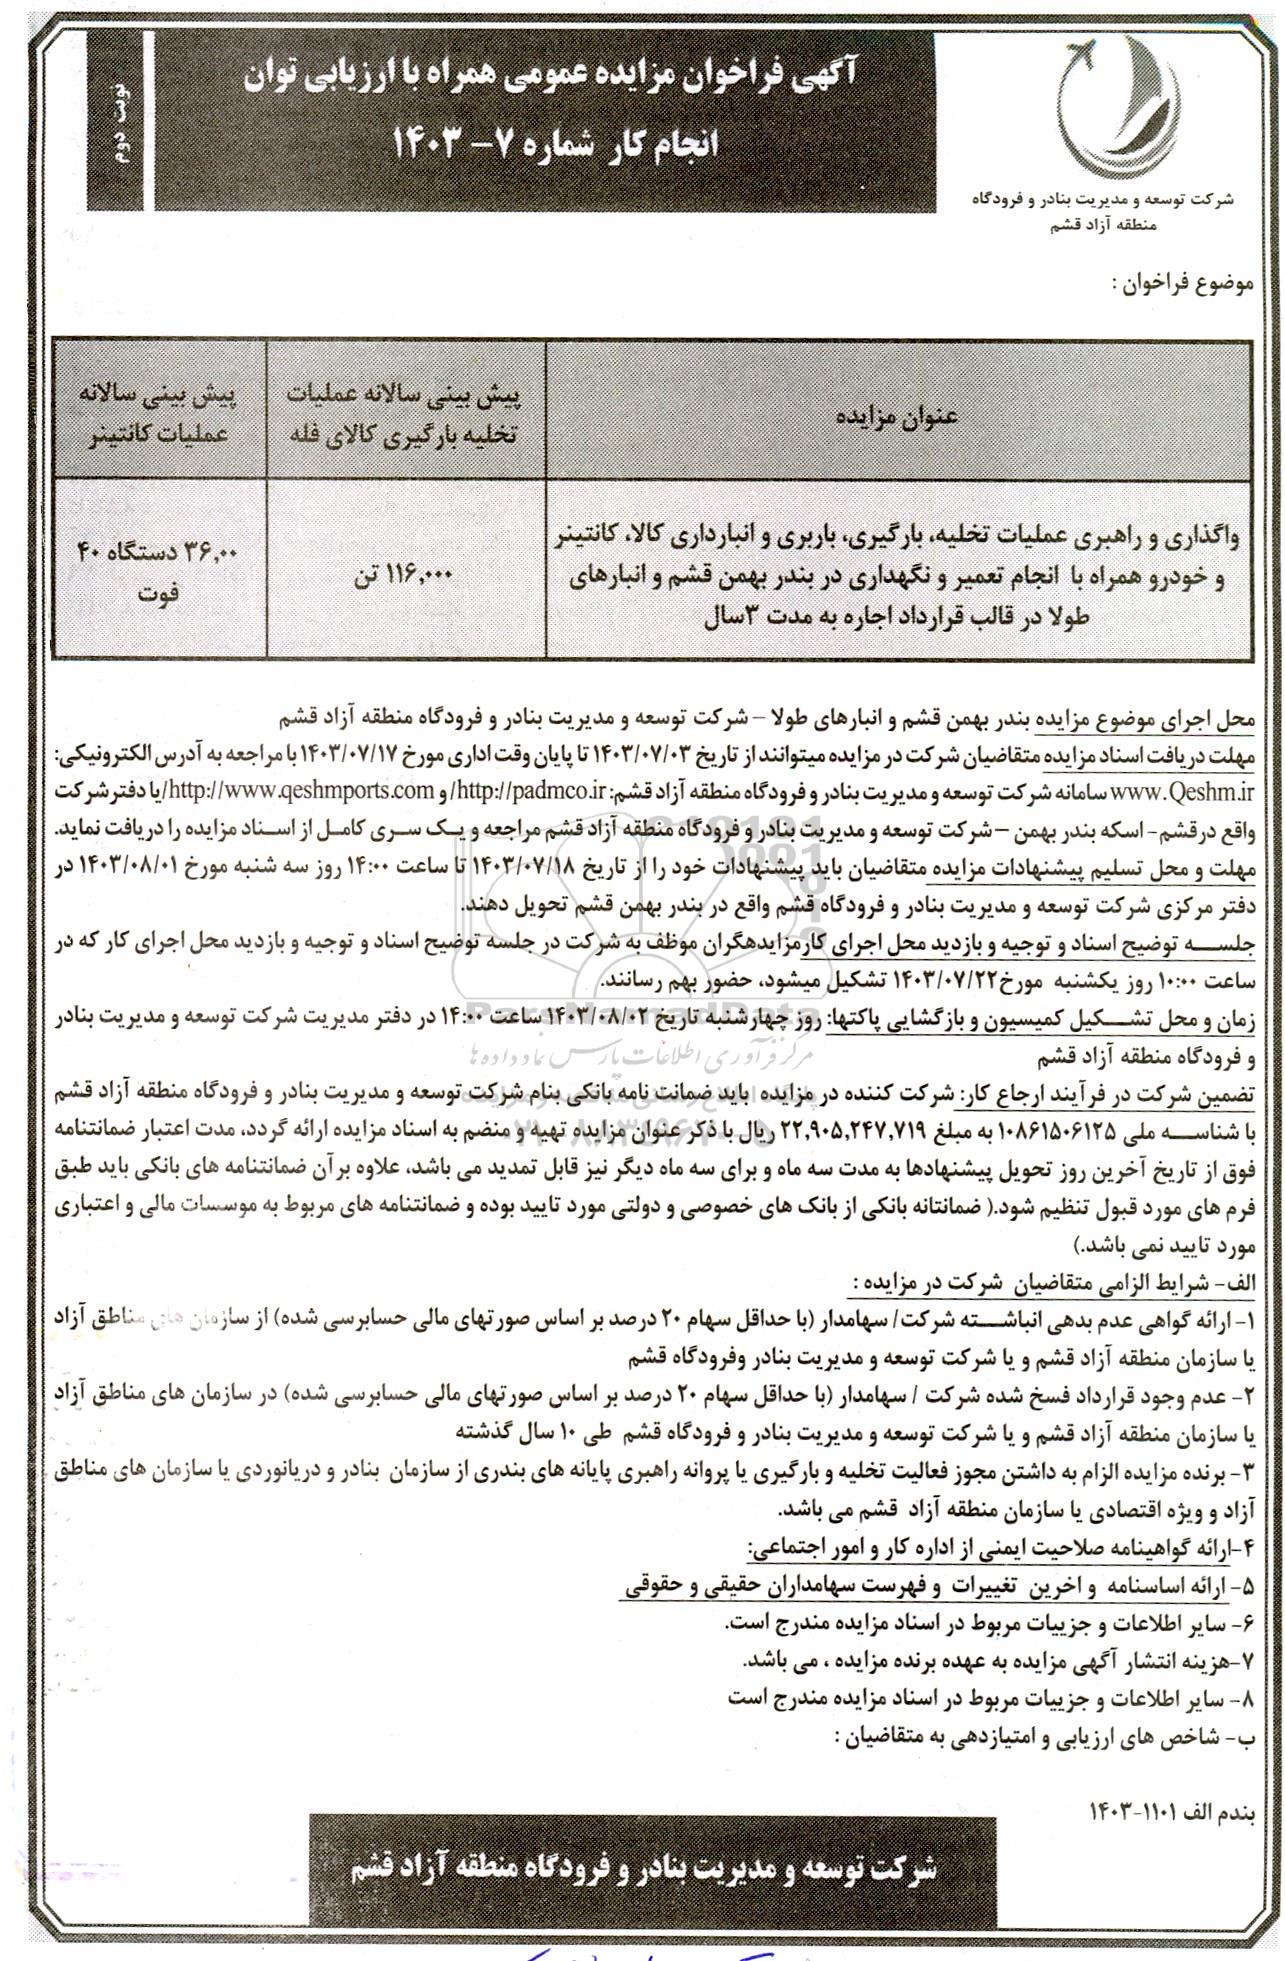 آگهی فراخوان مزایده عمومی همراه با ارزیابی توان
انجام کار شماره ۷- ۱۴۰۳
نوبت دوم
شرکت توسعه و مدیریت بنادر و فرودگاه
منطقه آزاد قشم
موضوع فراخوان :
عنوان مزایده
پیش بینی سالانه عملیات
تخلیه بارگیری کالای فله
پیش بینی سالانه
عملیات کانتینر
واگذاری و راهبری عملیات تخلیه، بارگیری، باربری و انبارداری کالا، کانتینر
و خودرو همراه با انجام تعمیر و نگهداری در بندر بهمن قشم و انبارهای
طولا در قالب قرارداد اجاره به مدت ۳سال
۱۱۶,۰۰۰ تن
۳۶,۰۰ دستگاه ۴۰
فوت
محل اجرای موضوع مزایده بندر بهمن قشم و انبارهای طولا – شرکت توسعه و مدیریت بنادر و فرودگاه منطقه آزاد قشم
مهلت دریافت اسناد مزایده متقاضیان شرکت در مزایده میتوانند از تاریخ ۱۴۰۳/۰۷/۰۳ تا پایان وقت اداری مورخ ۱۴۰۳/۰۷/۱۷ با مراجعه به آدرس الکترونیکی:
www.Qeshm.ir سامانه شرکت توسعه و مدیریت بنادر و فرودگاه منطقه آزاد قشم: http://padmco.ir/ و http://www.qeshmports.com/یا دفتر شرکت
واقع درقشم- اسکه بندر بهمن –شرکت توسعه و مدیریت بنادر و فرودگاه منطقه آزاد قشم مراجعه و یک سری کامل از اسناد مزایده را دریافت نماید.
مهلت و محل تسلیم پیشنهادات مزایده متقاضیان باید پیشنهادات خود را از تاریخ ۱۴۰۳/۰۷/۱۸ تا ساعت ۱۴:۰۰ روز سه شنبه مورخ ۱۴۰۳/۰۸/۰۱ در
دفتر مرکزی شرکت توسعه و مدیریت بنادر و فرودگاه قشم واقع در بندر بهمن قشم تحویل دهند.
جلسه توضیح اسناد و توجیه و بازدید محل اجرای کارمزایدهگران موظف به شرکت در جلسه توضیح اسناد و توجیه و بازدید محل اجرای کار که در
ساعت ۱۰:۰۰ روز یکشنبه مورخ۱۴۰۳/۰۷/۲۲ تشکیل میشود، حضور بهم رسانند.
زمان و محل تشکیل کمیسیون و بازگشایی پاکتها: روز چهارشنبه تاریخ ۱۴۰۳/۰۸/۰۲ ساعت ۱۴:۰۰ در دفتر مدیریت شرکت توسعه و مدیریت بنادر
و فرودگاه منطقه آزاد قشم
تضمین شرکت در فرآیند ارجاع کار: شرکت کننده در مزایده باید ضمانت نامه بانکی بنام شرکت توسعه و مدیریت بنادر و فرودگاه منطقه آزاد قشم
با شناسه ملی ۱۰۸۶۱۵۰۶۱۲۵ به مبلغ ۲۲,۹۰۵,۲۴۷,۷۱۹ ریال با ذکر عنوان مزایده تهیه و منضم به اسناد مزایده ارائه گردد، مدت اعتبار ضمانتنامه
فوق از تاریخ آخرین روز تحویل پیشنهادها به مدت سه ماه و برای سه ماه دیگر نیز قابل تمدید می باشد، علاوه برآن ضمانتنامه های بانکی باید طبق
فرم های مورد قبول تنظیم شود.( ضمانتانه بانکی از بانک های خصوصی و دولتی مورد تایید بوده و ضمانتنامه های مربوط به موسسات مالی و اعتباری
مورد تایید نمی باشد.)
الف- شرایط الزامی متقاضیان شرکت در مزایده :
۱- ارائه گواهی عدم بدهی انباشته شرکت/ سهامدار (با حداقل سهام ۲۰ درصد بر اساس صورتهای مالی حسابرسی شده) از سازمان های مناطق آزاد
یا سازمان منطقه آزاد قشم و یا شرکت توسعه و مدیریت بنادر وفرودگاه قشم
۲- عدم وجود قرارداد فسخ شده شرکت / سهامدار (با حداقل سهام ۲۰ درصد بر اساس صورتهای مالی حسابرسی شده) در سازمان های مناطق آزاد
یا سازمان منطقه آزاد قشم و یا شرکت توسعه و مدیریت بنادر و فرودگاه قشم طی ۱۰ سال گذشته
۳- برنده مزایده الزام به داشتن مجوز فعالیت تخلیه و بارگیری یا پروانه راهبری پایانه های بندری از سازمان بنادر و دریانوردی یا سازمان های مناطق
آزاد و ویژه اقتصادی یا سازمان منطقه آزاد قشم می باشد.
۴-ارائه گواهینامه صلاحیت ایمنی از اداره کار و امور اجتماعی:
۵- ارائه اساسنامه و اخرین تغییرات و فهرست سهامداران حقیقی و حقوقی
۶- سایر اطلاعات و جزییات مربوط در اسناد مزایده مندرج است.
۷-هزینه انتشار آگهی مزایده به عهده برنده مزایده ، می باشد.
۸- سایر اطلاعات و جزییات مربوط در اسناد مزایده مندرج است
ب- شاخص های ارزیابی و امتیازدهی به متقاضیان :
بندم الف ۱۱۰۱-۱۴۰۳
شرکت توسعه و مدیریت بنادر و فرودگاه منطقه آزاد قشم
ParsNamadData
مرکز فرآوری اطلاعات پارس نماد داده ها